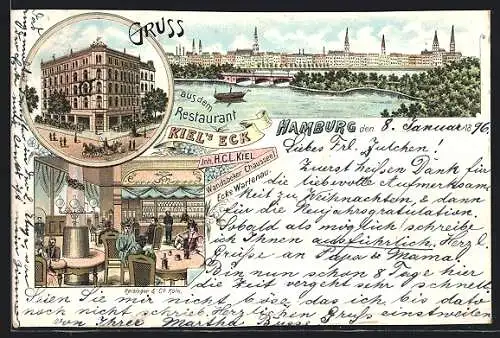 GRUSS
aus dem
Restaurant
KIEL'S ECK
Inh. H.C.L. KIEL.
Wandsbecker Chaussee 1
Ecke Wartenau.
HAMBURG den 8. Januar 1896
Liebes Frl. Julchen!
Zuerst heißen Dank für
die liebevolle Aufmerksam-
keit zu Weihnachten, & dann
für die Neujahrsgratulation.
Sobald als möglich schreibe
ich Ihnen ausführlich. Herzl.
Grüße an Papa & Mama.
Bin nun schon 8 Tage hier
die Zeit vergeht sehr schnell.
Seien Sie mir nicht böse, das ich bis dato
noch nicht schrieb. Herzlichen Gruß einstweilen
von Ihrer Martha Busse